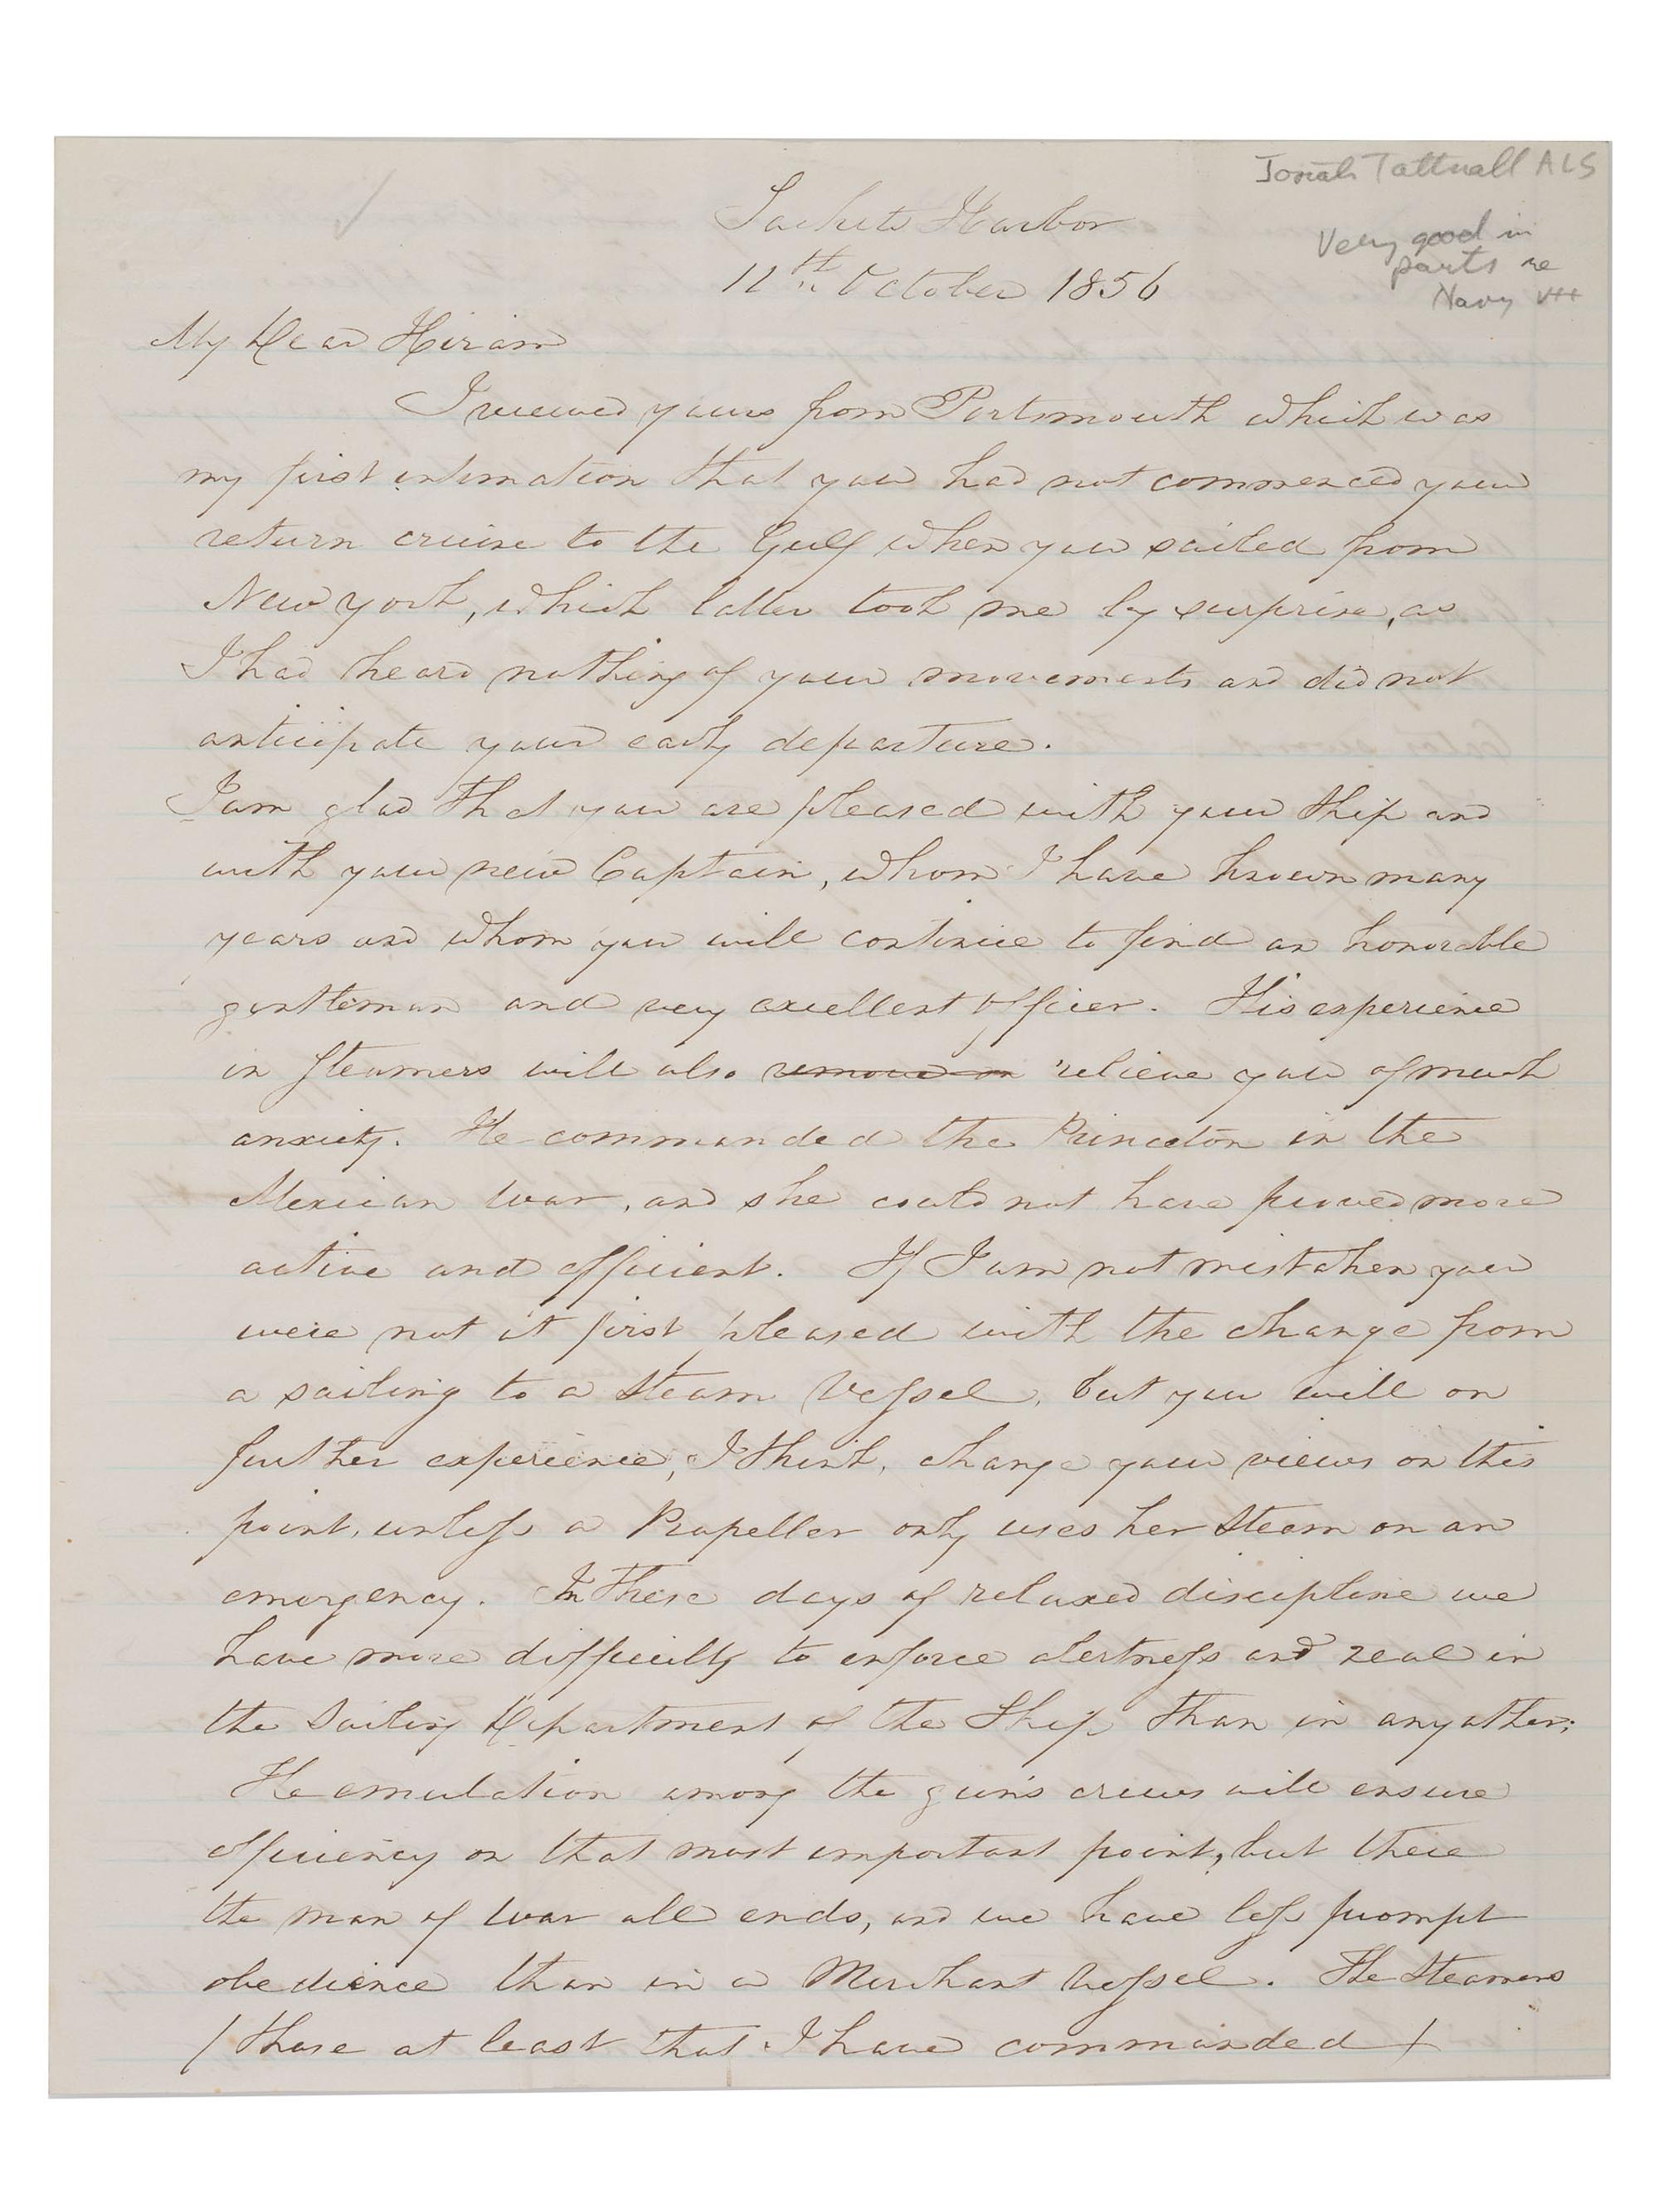 Josiah Tattnall ALS
Very good in
parts re
Navy
Sackets Harbor
11th October 1856
My Dear Hiram
I received yours from Portsmouth which was
my first intimation that you had not commenced your
return cruise to the Gulf when you sailed from
New York, which latter took me by surprise, as
I had heard nothing of your movements and did not
anticipate your early departure.
I am glad that you are pleased with your Ship and
with your new Captain, whom I have known many
years and whom you will continue to find an honorable
gentleman and very excellent officer. His experience
in Steamers will also remove relieve you of much
anxiety. He commanded the Princeton in the
Mexican War, and she could not have proved more
active and efficient. If I am not mistaken you
were not at first pleased with the change from
a sailing to a Steam Vessel, but you will on
further experience, I think, change your views on this
point, unless a Propeller only uses her Steam on an
emergency. In these days of relaxed discipline we
have more difficulty to enforce alertness and zeal in
the Sailing Department of the Ship than in any other;
The emulation among the guns crews will ensure
efficiency on that most important point, but there
the man of War all ends, and we have less prompt
obedience than in a Merchant Vessel. The Steamers
/ those at least that I have commanded /